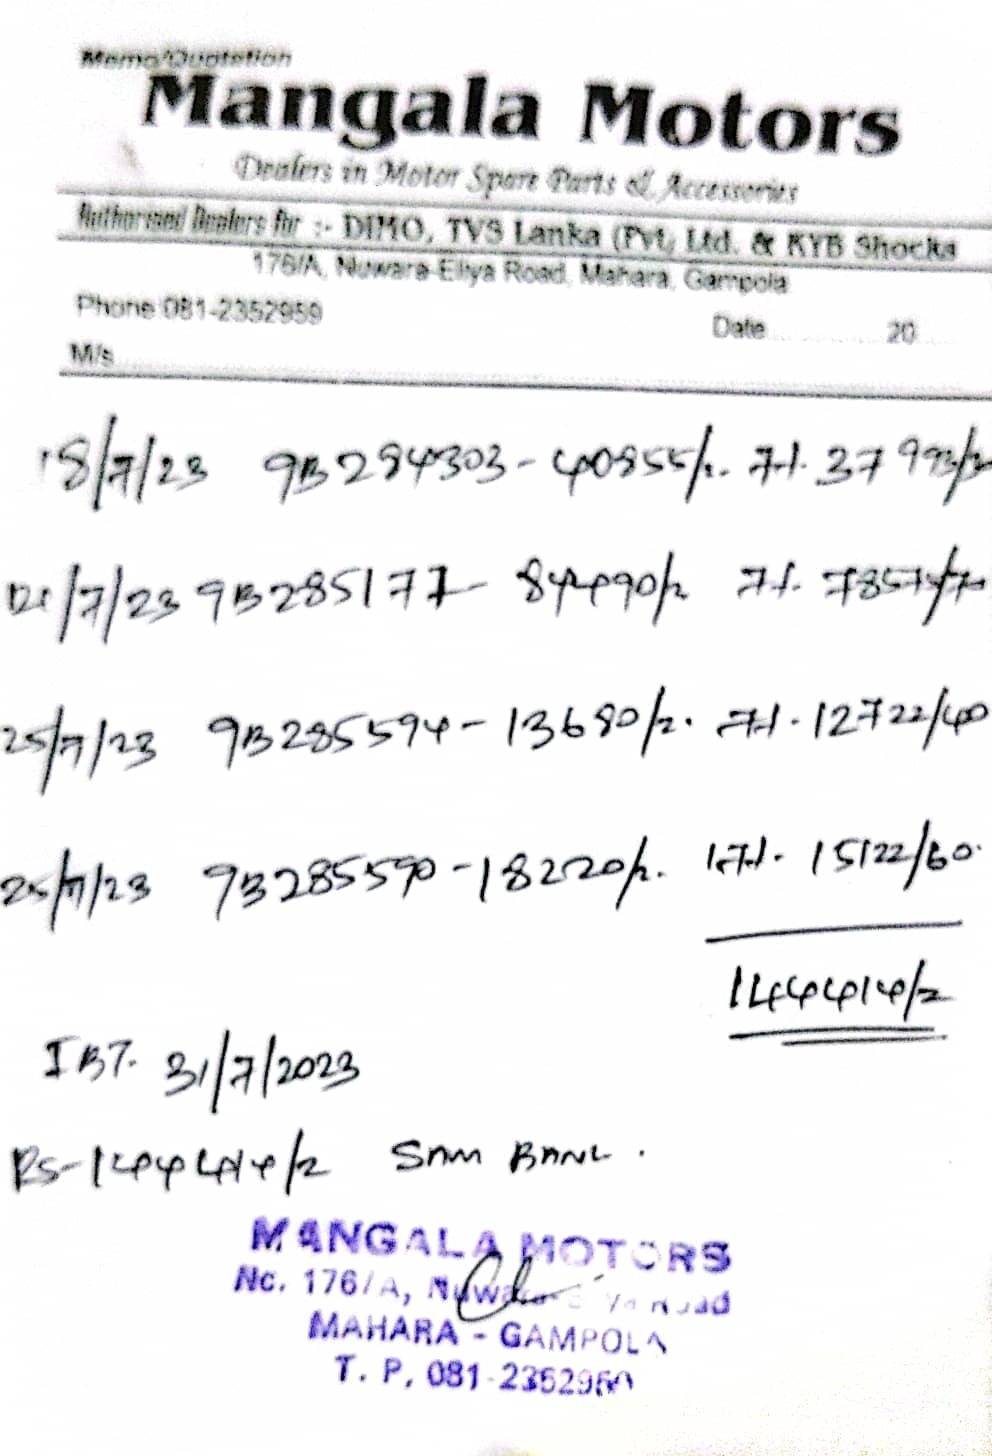 Memo/Quotation
Mangala Motors
Dealers in Motor Spare Parts & Accessories
Authorised Dealers for :- DIMO, TVS Lanka (Pvt) Ltd. & KYB Shocks
176/A, Nuwara-Eliya Road, Mahara, Gampola
Phone 081-2352959
Date.............20.....
M/s
18/7/23 9B284303 - 40855/= 7%. 37993/=
21/7/23 9B285177 - 84490/= 7%.
25/7/23 9B285594 - 13680/=. 7%. 12722/40
25/7/23 9B285590 - 18220/=. 17%. 15122/60
144414/=
IBT. 31/7/2023
RS-144414/= Sam BANK.
MANGALA MOTORS
No. 176/A, Nuwara Eliya Road
MAHARA - GAMPOLA
T. P. 081-2352960